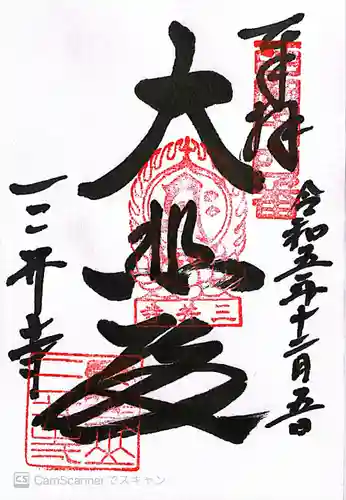 奉拝
令和五年十二月五日
大悲殿
三井寺
三井寺
CS CamScanner でスキャン